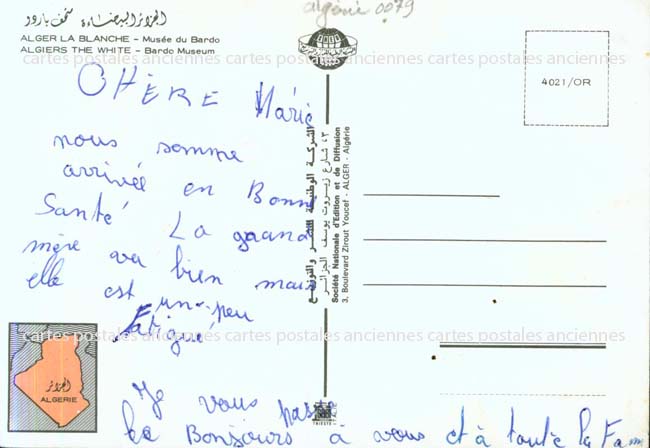 الجزائر البيضاء متحف باردو
ALGER LA BLANCHE – Musée du Bardo
ALGIERS THE WHITE – Bardo Museum
algérie 0079
4021/OR
CHÈRE Marie
nous somme
arrivée en Bonne
Santé La grand
mère va bien mais
elle est un peu
fatigué
Je vous passe
le Bonjours à vous et à toute la Fam
الشركة الوطنية للنشر والتوزيع
٤٣ شارع زيروت يوسف الجزائر
Société Nationale d'Edition et de Diffusion
3, Boulevard Zirout Youcef - ALGER - Algérie
الجزائر
ALGERIE
TRIESTE
cartes postales anciennes cartes postales anciennes cartes postales anciennes cartes postales anciennes
cartes postales anciennes cartes postales anciennes cartes postales anciennes cartes postales anciennes